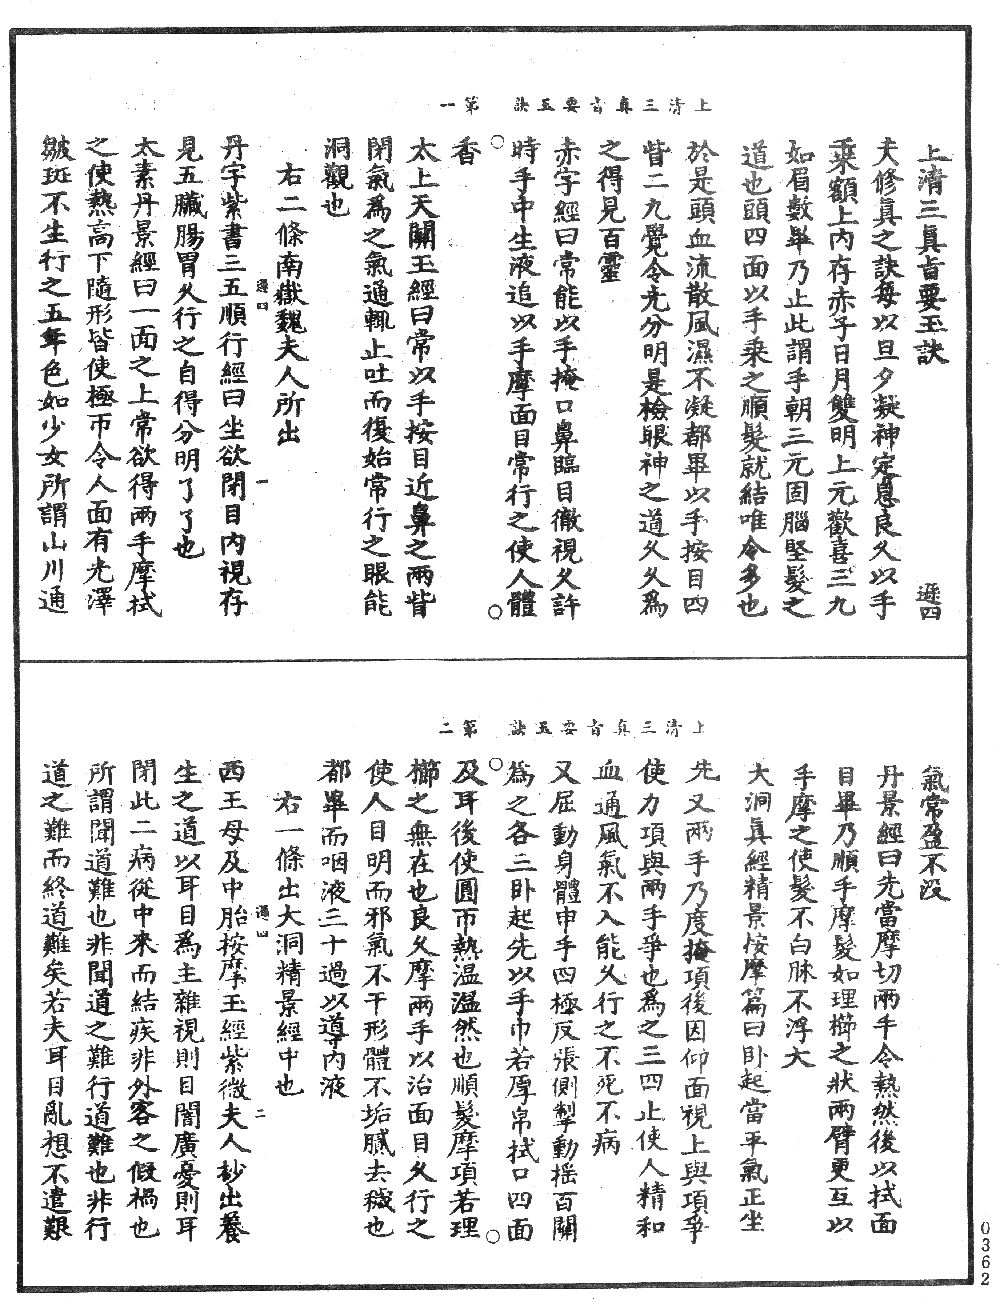 上清三真旨要玉訣　第一
上清三真旨要玉訣　遜四
夫修真之訣每以旦夕凝神定息良久以手
乘額上內存赤子日月雙明上元歡喜三九
如眉數畢乃止此謂手朝三元固腦堅髮之
道也頭四面以手乘之順髮就結唯令多也
於是頭血流散風濕不凝都畢以手按目四
眥二九覺令光分明是檢眼神之道久久為
之得見百靈
赤字經曰常能以手掩口鼻臨目徹視久許
時手中生液追以手摩面目常行之使人體
香
太上天關玉經曰常以手按目近鼻之兩眥
閉氣爲之氣通輒止吐而復始常行之眼能
洞觀也
右二條南嶽魏夫人所出
遜四　一
丹字紫書三五順行經曰坐欲閉目內視存
見五臟腸胃久行之自得分明了了也
太素丹景經曰一面之上常欲得兩手摩拭
之使熱高下隨形皆使極帀令人面有光澤
皺斑不生行之五年色如少女所謂山川通
上清三真旨要玉訣　第二
氣常盈不沒
丹景經曰先當摩切兩手令熱然後以拭面
目畢乃順手摩髮如理櫛之狀兩臂更互以
手摩之使髮不白脉不浮大
大洞真經精景按摩篇曰卧起當平氣正坐
先叉兩手乃度掩項後因仰面視上與項爭
使力項與兩手爭也爲之三四止使人精和
血通風氣不入能久行之不死不病
又屈動身體申手四極反張側掣動搖百關
爲之各三卧起先以手巾若厚帛拭口四面
及耳後使圓帀熱溫溫然也順髮摩項若理
櫛之無在也良久摩兩手以治面目久行之
使人目明而邪氣不干形體不垢膩去穢也
都畢而咽液三十過以導內液
右一條出大洞精景經中也
遜四　二
西王母及中胎按摩玉經紫微夫人抄出養
生之道以耳目爲主雜視則目闇廣憂則耳
閉此二病從中來而結疾非外客之假禍也
所謂聞道難也非聞道之難行道難也非行
道之難而終道難矣若夫耳目亂想不遣艱
0362